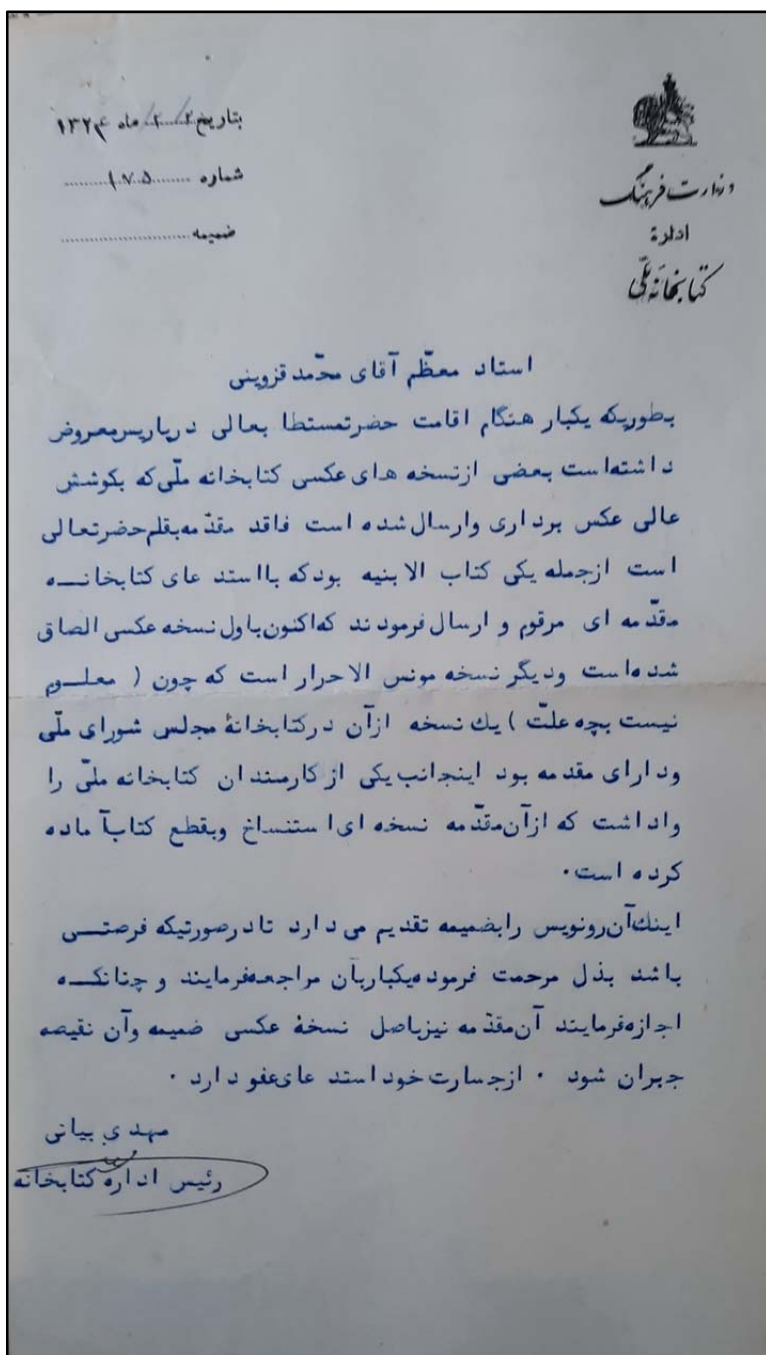 بتاریخ ۲/۲/ ماه ۱۳۲۴
شماره ۱۰۷۵
ضمیمه
وزارت فرهنگ
ادارهٔ
کتابخانه ملّی
استاد معظّم آقای محمّد قزوینی
بطوریکه یکبار هنگام اقامت حضرتمستطا بعالی درپاریس‌معروض
داشته‌است بعضی ازنسخه های عکسی کتابخانه ملّی‌که بکوشش
عالی عکس برداری وارسال شده است فاقد مقدّمه‌بقلم‌حضرتعالی
است ازجمله یکی کتاب الابنیه بودکه بااستد عای کتابخانــه
مقدّمه ای مرقوم و ارسال فرمودند که‌اکنون‌باول نسخه عکسی الصاق
شده‌است ودیگر نسخه مونس الاحرار است که چون ( معلــوم
نیست بچه علتّ ) یك نسخه ازآن درکتابخانهٔ مجلس شورای ملّی
ودارای مقدمه بود اینجانب یکی ازکارمندان کتابخانه ملّی را
واداشت که ازآن‌مقدّمه نسخه ای‌استنساخ وبقطع کتاب‌آماده
کرده است.
اینك‌آن‌رونویس رابضمیمه تقدیم می دارد تادرصورتیکه فرصتــی
باشد بذل مرحمت فرموده‌یکباربآن مراجعه‌فرمایند و چنانکــه
اجازه‌فرمایند آن‌مقدّمه نیزباصل نسخهٔ عکسی ضمیمه وآن نقیصه
جبران شود . ازجسارت خوداستدعای‌عفودارد .
مهدی بیانی
رئیس اداره کتابخانه